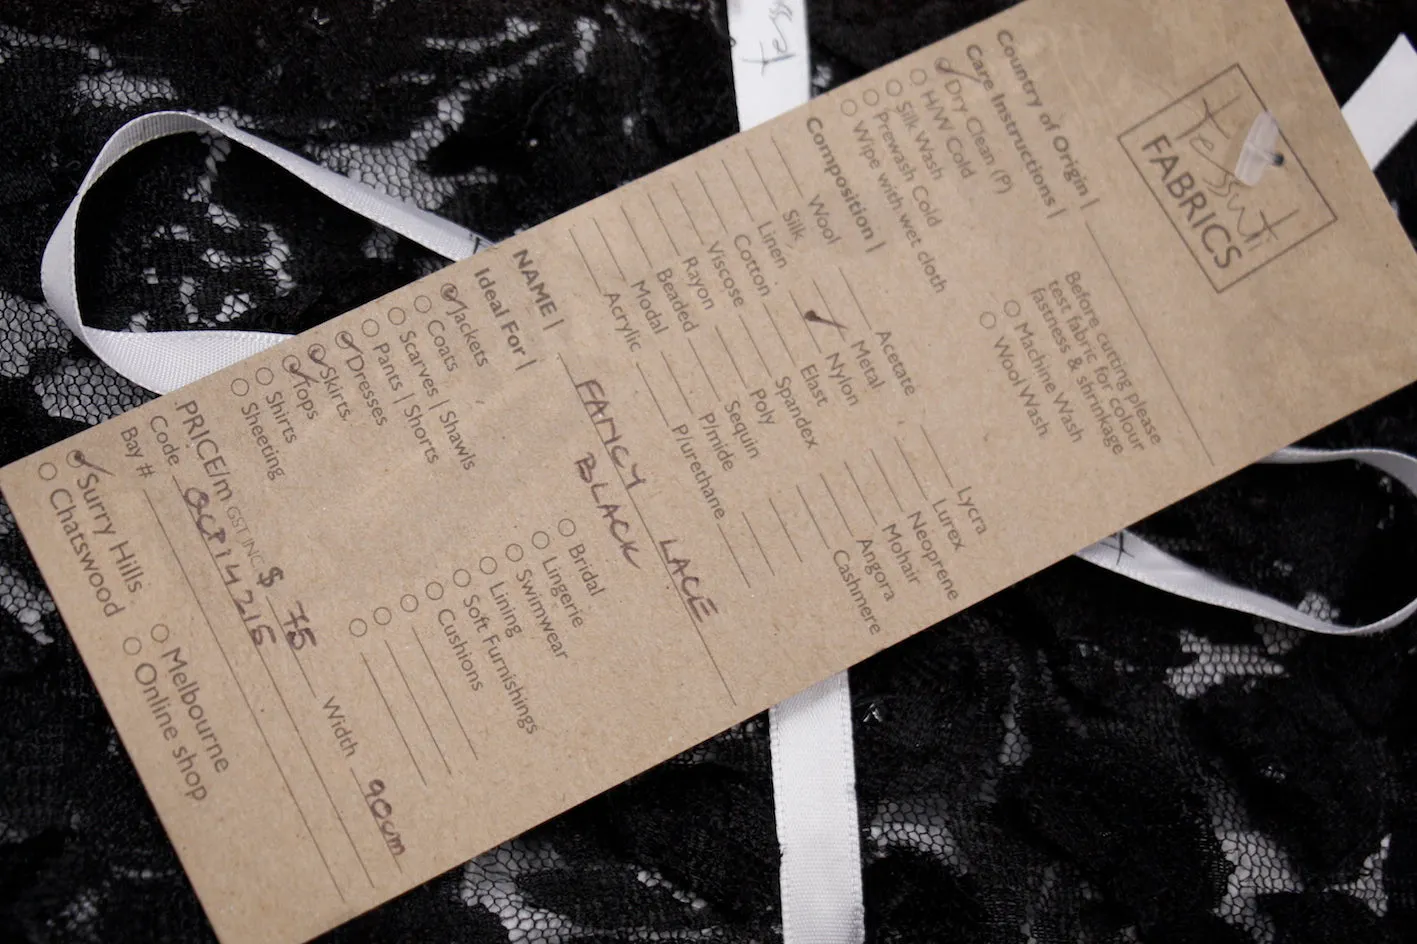 tessuti
FABRICS
Country of Origin |
Care Instructions |
Dry Clean (P)
H/W Cold
Silk Wash
Prewash Cold
Wipe with wet cloth
Before cutting please
test fabric for colour
fastness & shrinkage
Machine Wash
Wool Wash
Composition |
Wool
Silk
Linen
Cotton
Viscose
Rayon
Beaded
Modal
Acrylic
Acetate
Metal
Nylon
Elast
Spandex
Poly
Sequin
P/mide
P/urethane
Lycra
Lurex
Neoprene
Mohair
Angora
Cashmere
NAME | FANCY LACE
BLACK
Ideal For |
Jackets
Coats
Scarves | Shawls
Pants | Shorts
Dresses
Skirts
Tops
Shirts
Sheeting
Bridal
Lingerie
Swimwear
Lining
Soft Furnishings
Cushions
PRICE/m GST INC $ 75 Width 90cm
Code OCP14215
Bay #
Surry Hills
Chatswood
Melbourne
Online shop